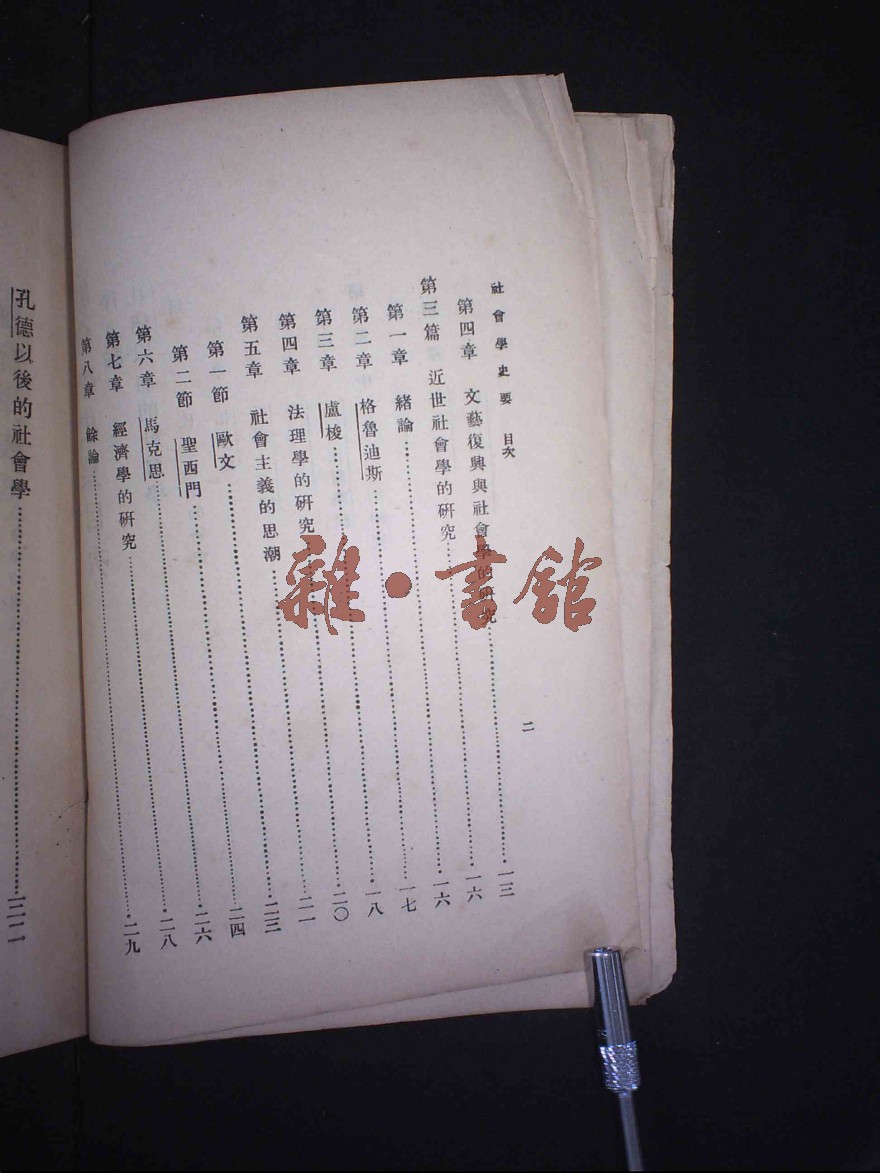 社會學史要 目次 二
第四章 文藝復興與社會學的研究……一三
第三篇 近世社會學的研究……一六
第一章 緒論……一六
第二章 格魯迪斯……一七
第三章 盧梭……一八
第四章 法理學的研究……二〇
第五章 社會主義的思潮……二一
第一節 歐文……二三
第二節 聖西門……二四
第六章 馬克思……二六
第七章 經濟學的研究……二八
第八章 餘論……二九
孔德以後的社會學……
雜·書館